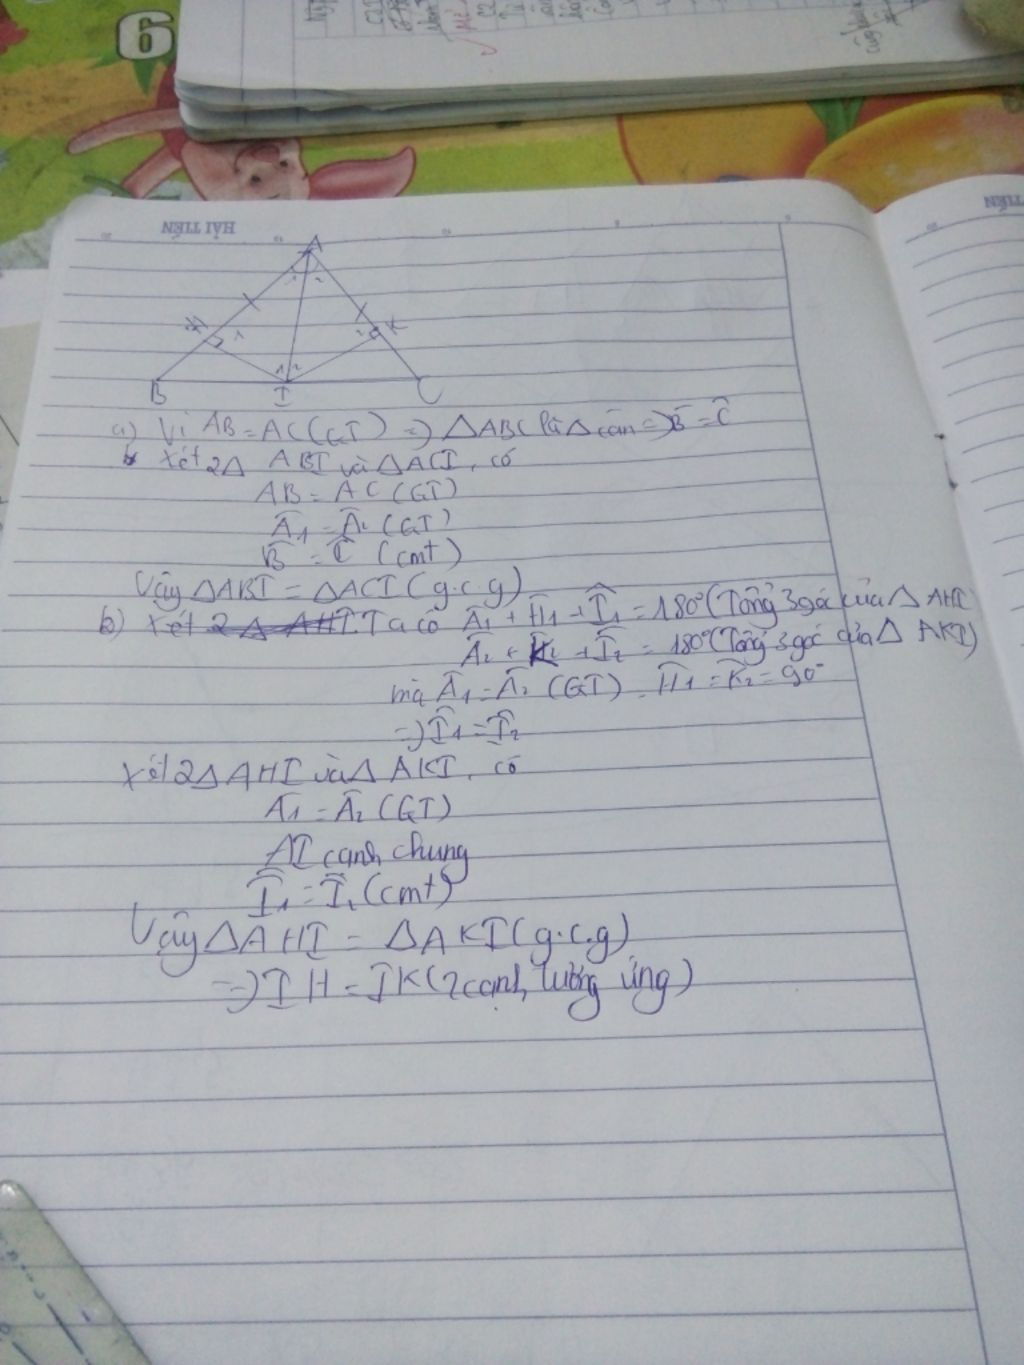 6
HẢI TIẾN
A
1 2
H 1
2 K
1 2
B I C
a) Vì AB = AC (GT) => ΔABC là Δ cân => B̂ = Ĉ
Xét 2Δ ABI và ΔACI, có
AB = AC (GT)
Â1 = Â2 (GT)
B̂ = Ĉ (cmt)
Vậy ΔABI = ΔACI (g.c.g)
b) Xét 2 Δ AHI Ta có Â1 + Ĥ1 + Î1 = 180° (Tổng 3 góc của Δ AHI
Â2 + K̂2 + Î2 = 180° (Tổng 3 góc của Δ AKI)
mà Â1 = Â2 (GT) Ĥ1 = K̂2 = 90°
=> Î1 = Î2
Xét 2Δ AHI và Δ AKI, có
Â1 = Â2 (GT)
AI cạnh chung
Î1 = Î2 (cmt)
Vậy ΔAHI = ΔAKI (g.c.g)
=> IH = IK (2 cạnh tương ứng)